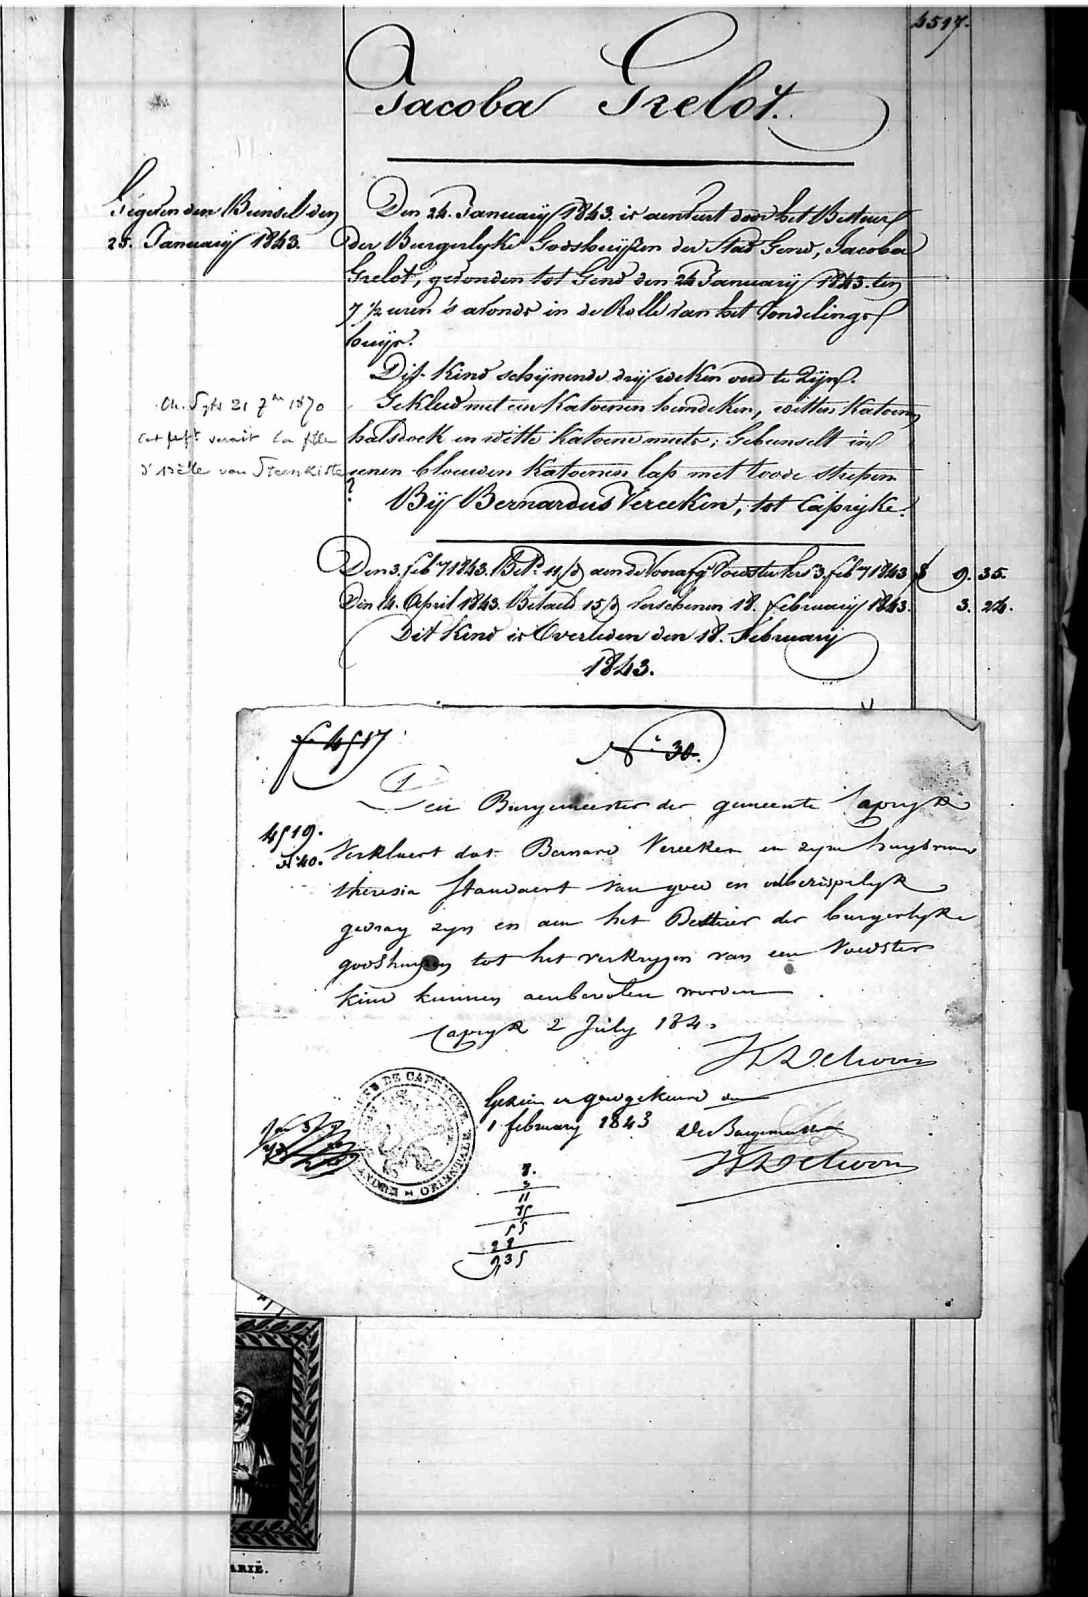 4517.
Jacoba Grelot.
Gegeven den Bunsel den
25. January 1843.
Den 24. January 1843. is aenveert door het Bestuur
der Burgerlyke Godshuyzen der Stad Gend, Jacoba
Grelot, gevonden tot Gend den 24 January 1843. ten
7 1/2 uren 's avonds in de Rolle van het Vondelings
huys.
Dit Kind schynende dry weken oud te zyn.
Gekleed met een Katoenen hemdeken, witten Katoenen
halsdoek en witte Katoene muts; Gebunselt in
eenen blouwen Katoenen lap met roode strepen
Ch. 21 7bre 1870
Cet enft serait la fille
d' van Steenkiste
?
By Bernardus Vereeken, tot Caprijke.
Den 3. feb 1843. Betd 11/d aen de 3. feb 1843 9. 35.
Den 14. April 1843. Betaeld 15/d verschenen 18. february 1843. 3. 24.
Dit Kind is Overleden den 18. February
1843.
f 4517
No 30.
Den Burgemeester der gemeente Capryk
4519.
N 40.
Verklaert dat Bernard Vereeken en zyne huysvrouw
theresia Standaert van goed en onberispelyk
gedrag zyn en aen het Bestier der burgerlyke
godshuyzen tot het verkrygen van een Voedster
kind kunnen aenbevolen worden
Capryk 2 July 184
Gezien en goedgekeurd den
1 february 1843
De Burgemeester
DE CAPRYCKE
8.
3
11
55
935
ARIE.